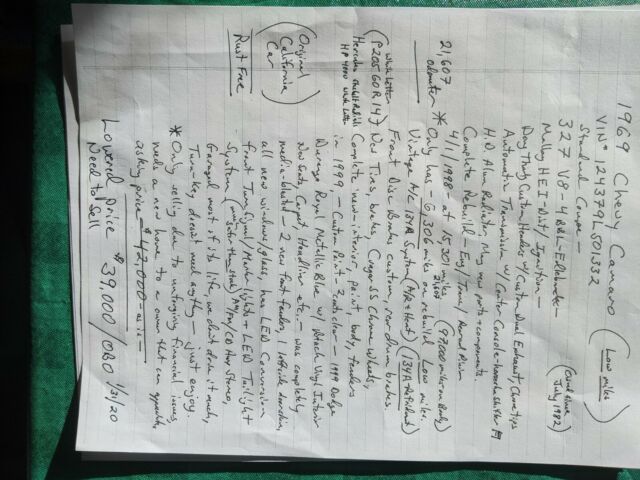 1969 Chevy Camaro (Low miles)
VIN# 124379L501332
Standard Coupe -
327 V8 - 4BBL - Edelbrock - (Owned since July 1982)
Mallory HEI - Dist/Ignition -
Doug Thorley Custom Headers w/ Custom Dual Exhaust, Chrome tips
Automatic Transmission w/ Center Console - horseshoe shifter
H.D. Alum Radiator, Many new parts + components.
Complete Rebuild - Eng/Trans/
4/1/1998 - at 15,301 miles (97,000 miles on Body)
21,607 odometer * Only has - 6,306 miles on rebuild Low miles.
Vintage A/C 134A System (A/C + Heat) (134A Refrigerant)
Front Disc Brakes custom, rear drum brakes.
(P205 60R 14) New Tires, brakes Cragar SS Chrome Wheels,
White Letter Hercules HP 4000 Complete "new" interior, paint, body, fenders
in 1999, - Custom Paint - 1999 Dodge
Durango Royal Metallic Blue w/ Black Vinyl Interior
New Seats, Carpet, Headliner etc, - was completely
(Original California Car) media-blasted - 2 new front fenders,
all new windows/glass, has LED Conversion
Front Turn Signal/Marker lights + LED Taillight
Rust Free System AM/FM/CD Stereo,
Garaged most of its life, we don't drive it much,
Turn-key doesn't need anything - just enjoy.
* Only selling due to unforgiving financial issues,
needs a new home to a owner that can appreciate,
asking price - $42,000
Lowered price $39,000/OBO 1/31/20
Need to Sell